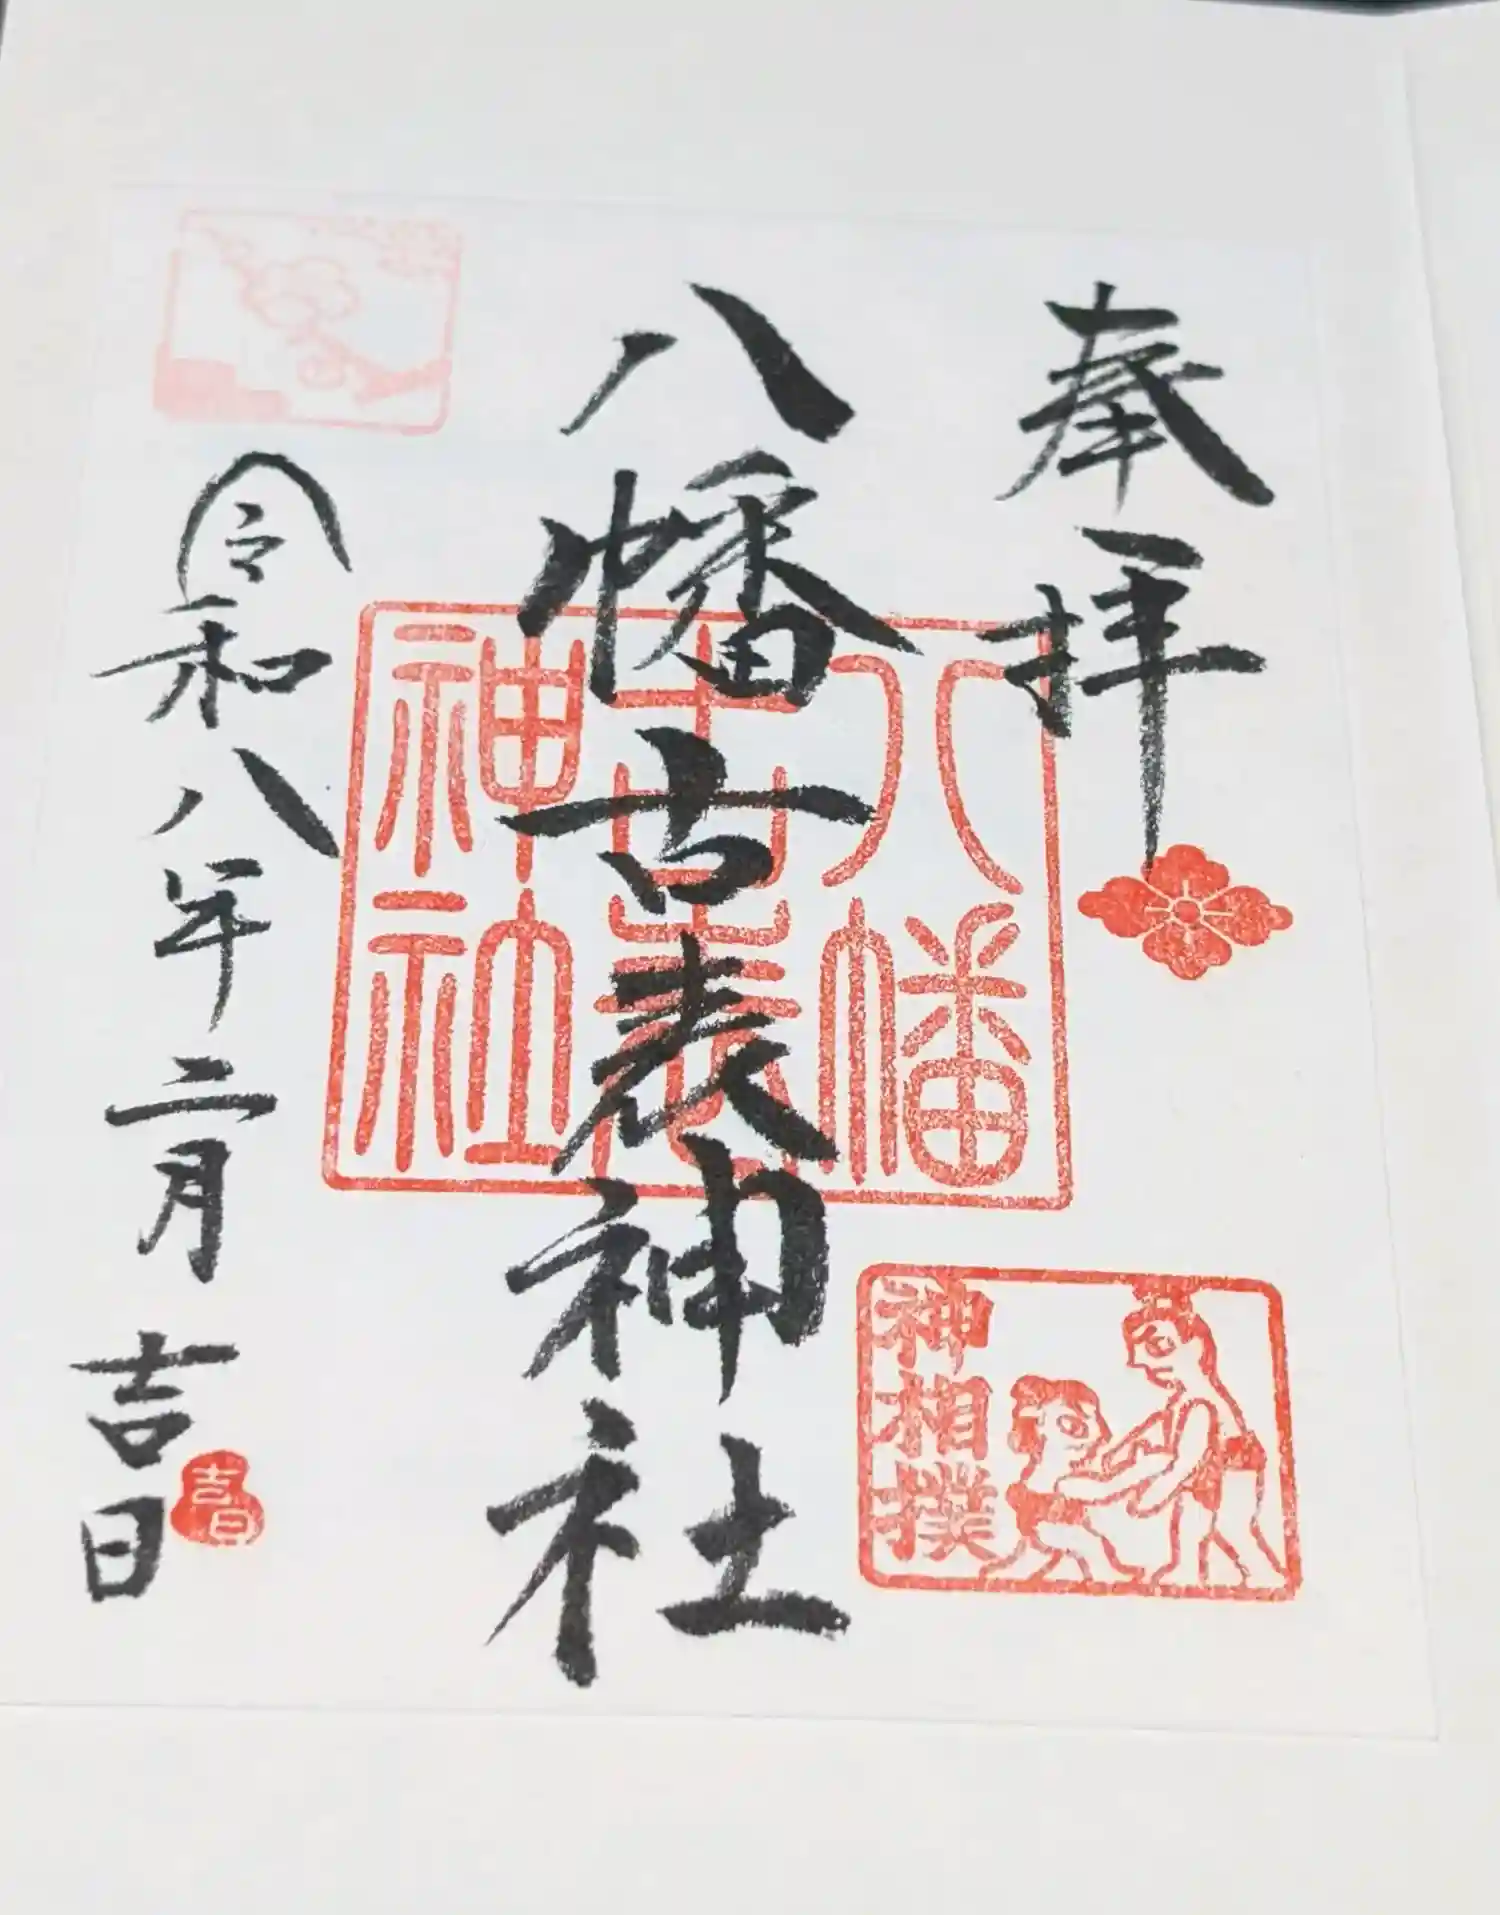 奉拝
八幡古表神社
八幡
古表
神社
神相撲
令和八年二月吉日
吉日